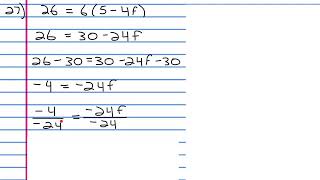 27) 26 = 6(5-4f)
26 = 30 - 24f
26 - 30 = 30 - 24f - 30
-4 = -24f
-4/-24 = -24f/-24